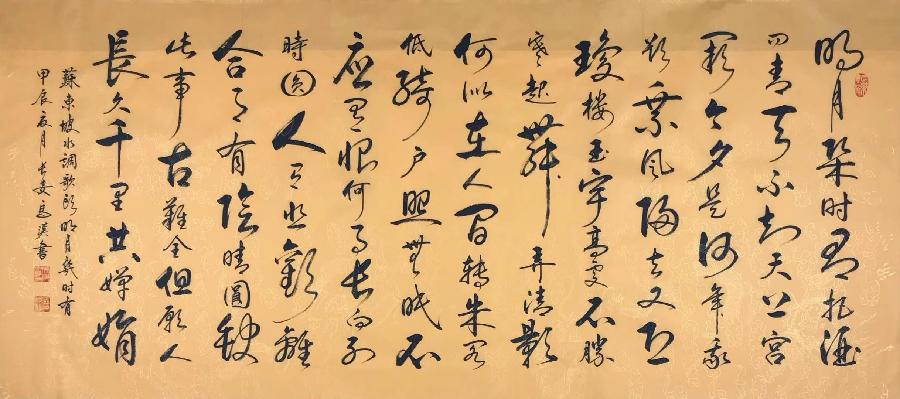 明月幾时有把酒
问青天不知天上宫
阙今夕是何年我
欲乘风归去又恐
瓊楼玉宇高处不勝
寒起舞弄清影
何似在人间转朱阁
低绮户照無眠不
应有恨何事长向别
時圆人有悲歡離
合月有陰晴圓缺
此事古難全但願人
長久千里共嬋娟
蘇東坡水調歌頭明月幾时有
甲辰夏月长安書